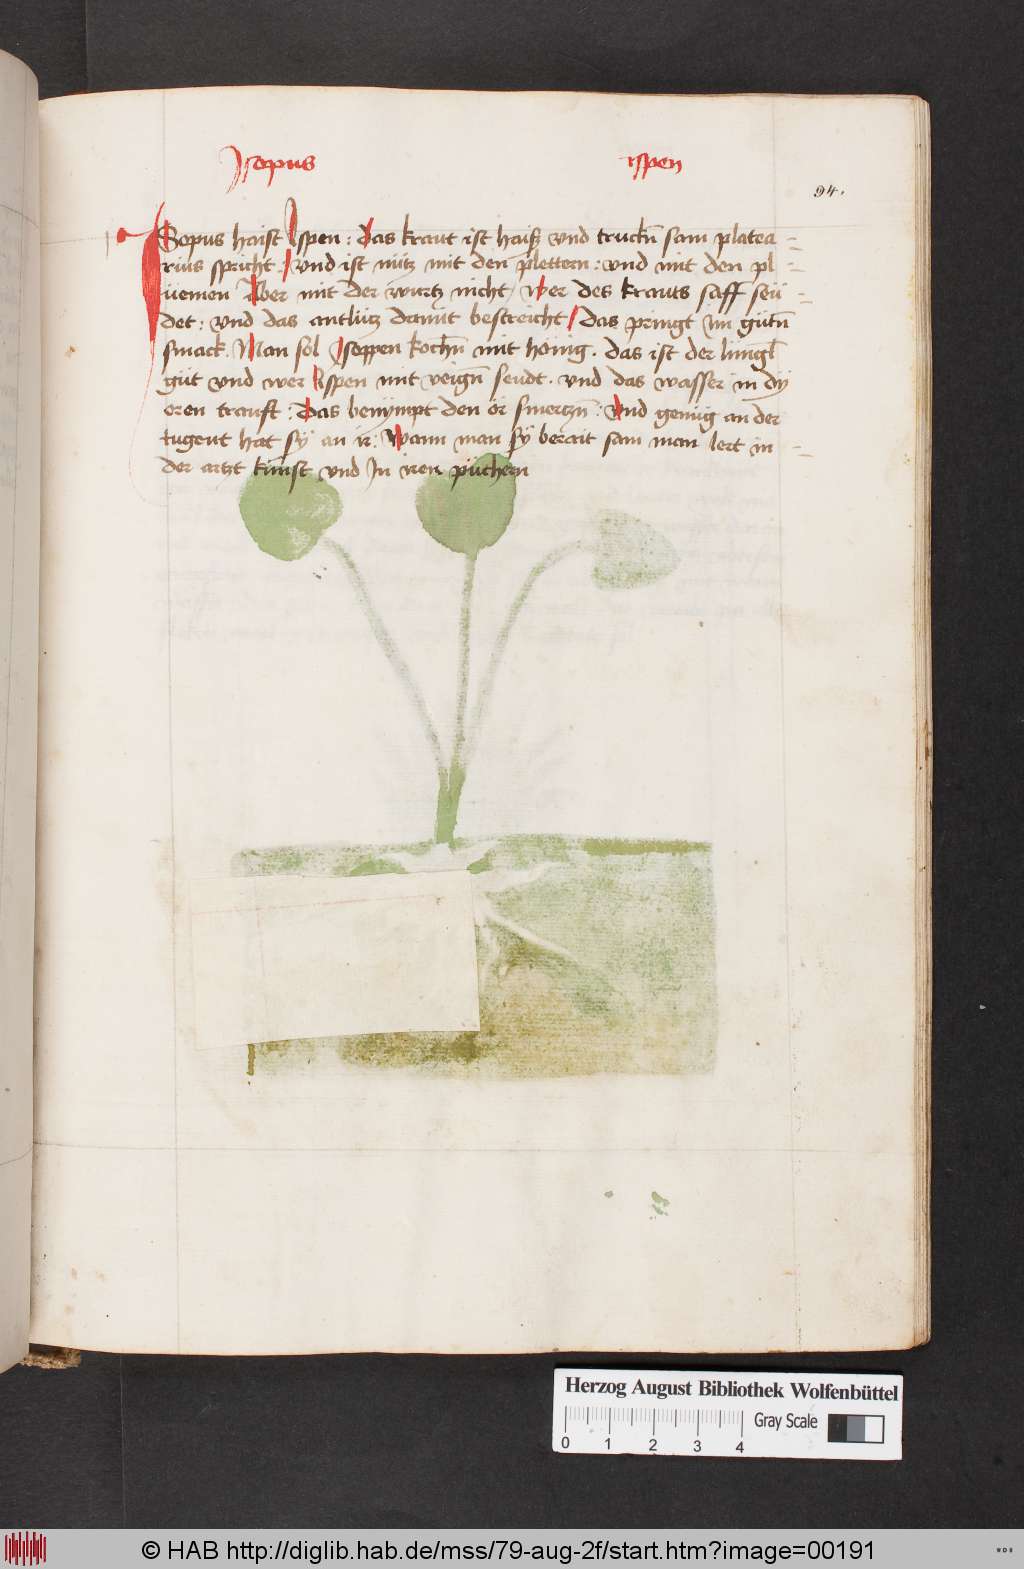 Jsopus ispen
94.
Jsopus haist Jspen : das kraut ist haiß vnd truckn̄ sam platea-
rius spricht : vnd ist nütz mit den plettern : vnd mit den pl-
üemen Aber mit der wurtz nicht, wer des krauts saff seü-
det : vnd das antlütz damit bestreicht / das pringt im gütn̄
smack. Man sol Jsoppen kochn̄ mit hönig. das ist der
güt vnd wer Jspen mit veign̄ seudt. vnd das wasser in dÿ
oren trauft : das benÿmpt den ör smertzn̄ : vnd genüg an der
tugent hat sÿ an ir : Wann man sÿ berait sam man lert in
der artzt künst vnd Jn iren püchern
Herzog August Bibliothek Wolfenbüttel
Gray Scale
0 1 2 3 4
© HAB http://diglib.hab.de/mss/79-aug-2f/start.htm?image=00191